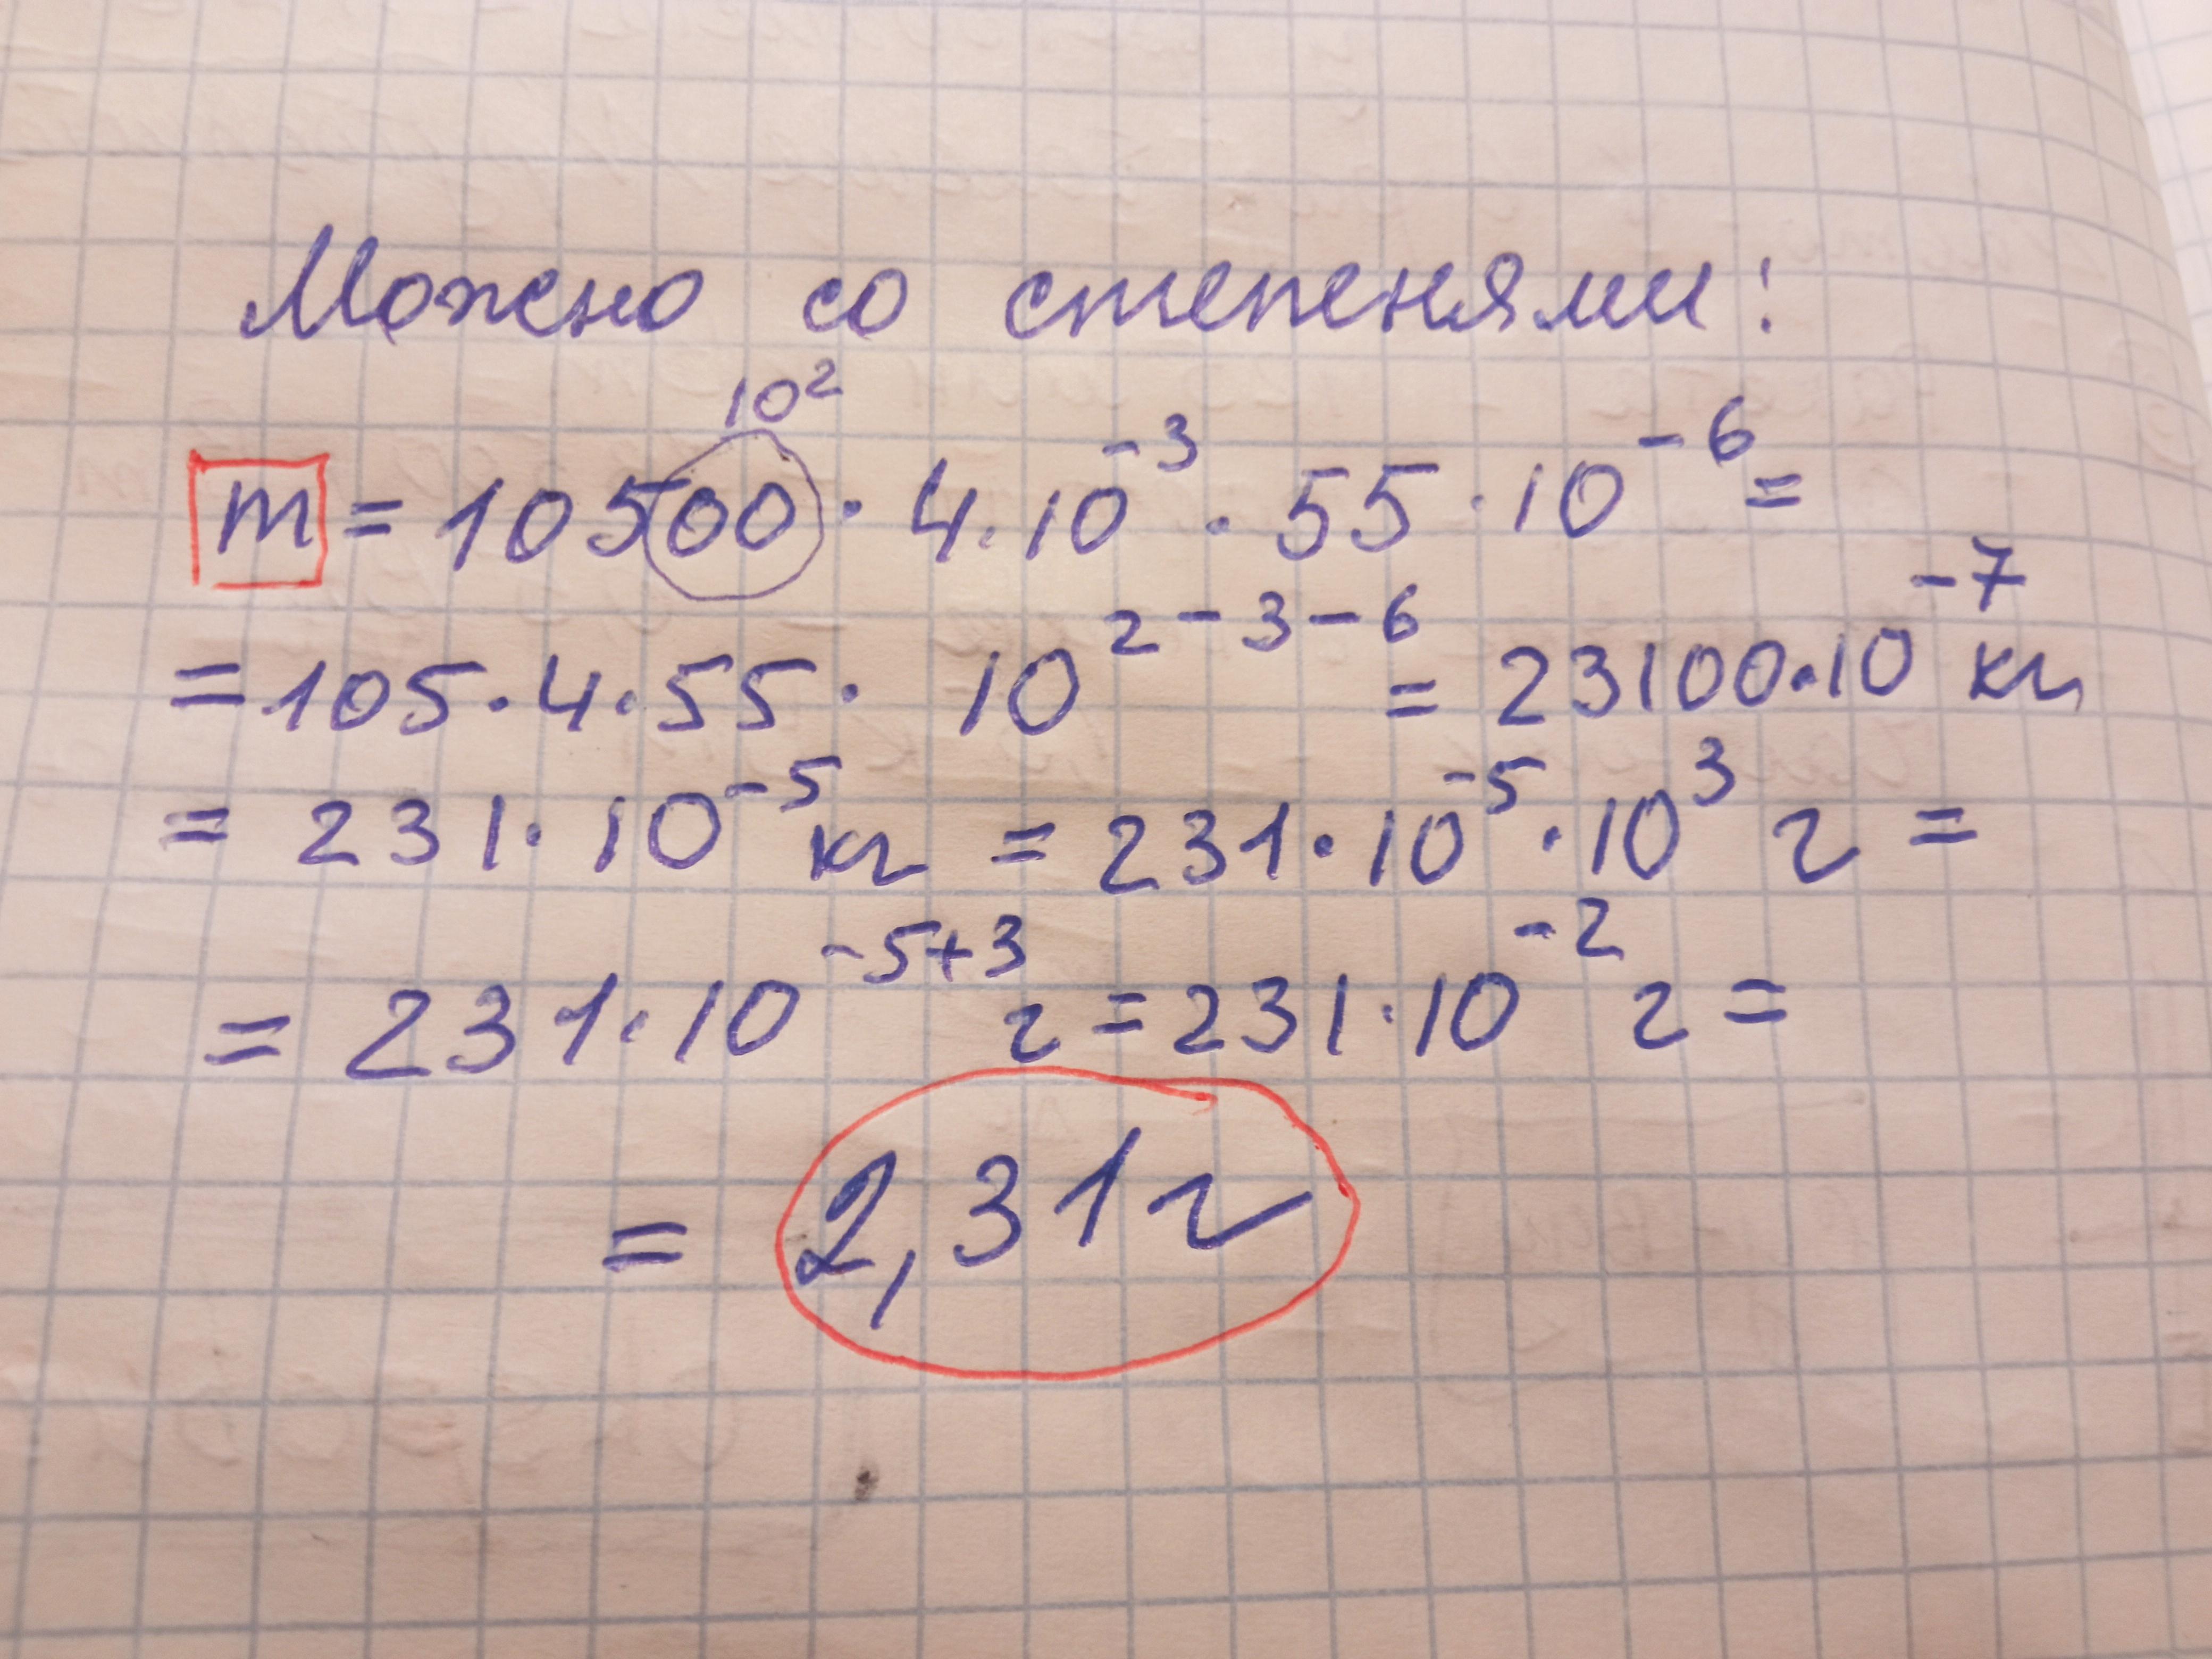 Можно со степенями:
10²
m = 10500 · 4 · 10⁻³ · 55 · 10⁻⁶ =
= 105 · 4 · 55 · 10²⁻³⁻⁶ = 23100 · 10⁻⁷ кг
= 231 · 10⁻⁵ кг = 231 · 10⁻⁵ · 10³ г =
= 231 · 10⁻⁵⁺³ г = 231 · 10⁻² г =
= 2,31 г